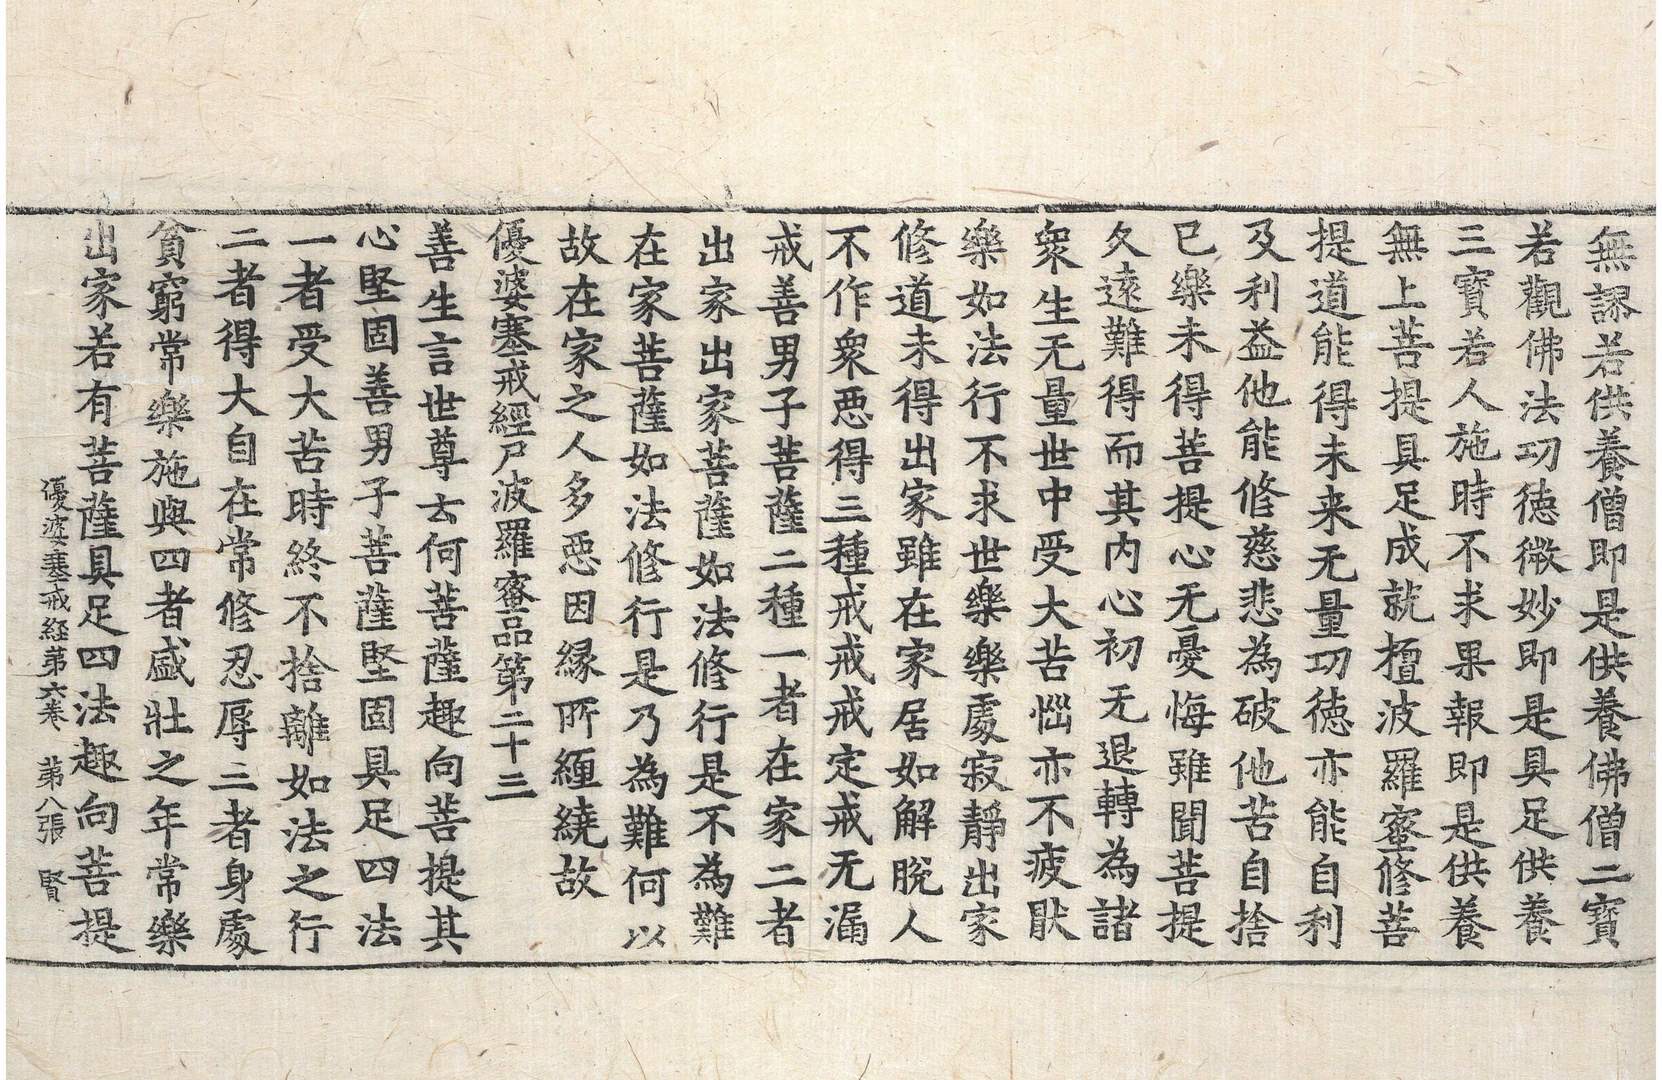 無謬若供養僧即是供養佛僧二寶
若觀佛法功徳微妙即是具足供養
三寳若人施時不求果報即是供養
無上菩提具足成就檀波羅蜜修菩
提道能得未来无量功徳亦能自利
及利益他能修慈悲為破他苦自捨
已樂未得菩提心无憂悔雖聞菩提
久遠難得而其内心初无退轉為諸
衆生无量世中受大苦惱亦不疲猒
樂如法行不求世樂樂處寂靜出家
修道未得出家雖在家居如解脫人
不作衆惡得三種戒戒戒定戒无漏
戒善男子菩薩二種一者在家二者
出家出家菩薩如法修行是不為難
在家菩薩如法修行是乃為難何以
故在家之人多惡因縁所纏繞故
優婆塞戒經尸波羅蜜品第二十三
善生言世尊云何菩薩趣向菩提其
心堅固善男子菩薩堅固具足四法
一者受大苦時終不捨離如法之行
二者得大自在常修忍辱三者身處
貧窮常樂施與四者盛壯之年常樂
出家若有菩薩具足四法趣向菩提
優婆塞戒経第六卷 第八張 賢